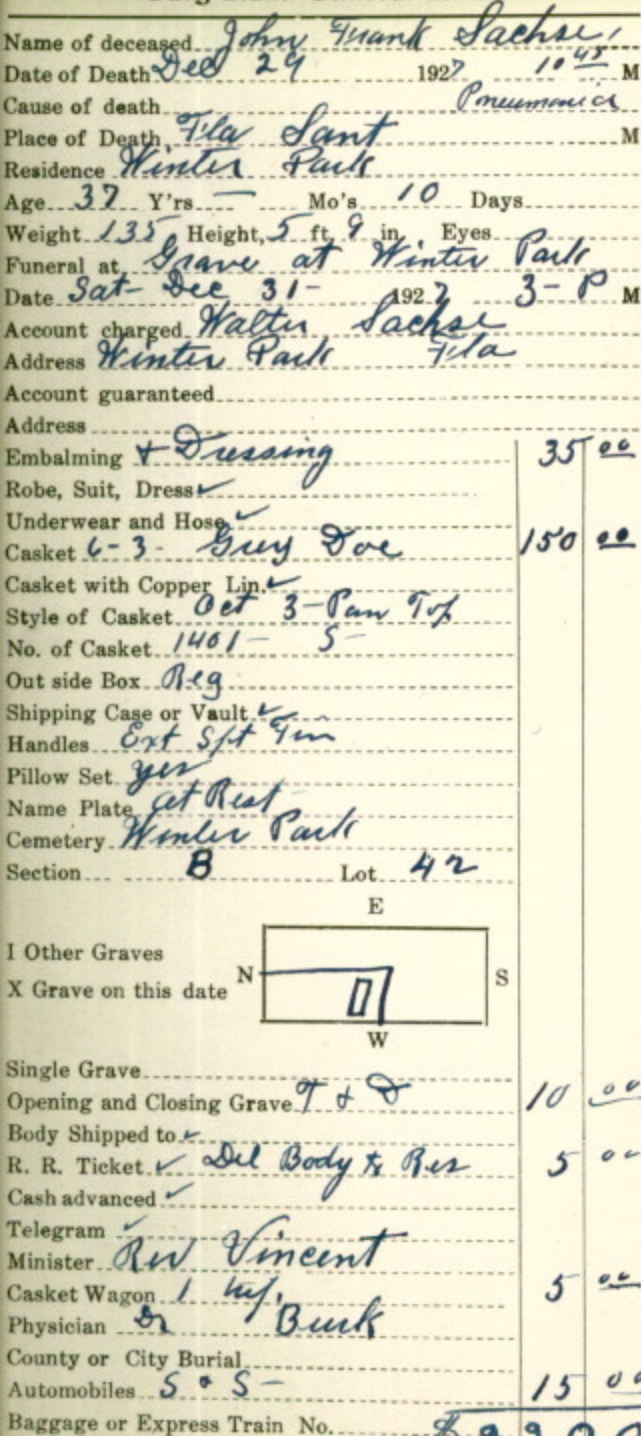 Name of deceased John Frank Sachse
Date of Death Dec 29 1927 10 45 M
Cause of death Pneumonia
Place of Death Fla Sant M
Residence Winter Park
Age 37 Y'rs — Mo's 10 Days
Weight 135 Height, 5 ft. 9 in. Eyes
Funeral at Grave at Winter Park
Date Sat- Dec 31- 1927 3- P M
Account charged Walter Sachse
Address Winter Park Fla
Account guaranteed
Address
Embalming + Dressing 35 00
Robe, Suit, Dress ✓
Underwear and Hose ✓
Casket 6-3- Grey Doe 150 00
Casket with Copper Lin. ✓
Style of Casket Oct 3-Pan Top
No. of Casket 1401- S-
Out side Box Reg
Shipping Case or Vault ✓
Handles Ext Sft Tin
Pillow Set yes
Name Plate At Rest
Cemetery Winter Park
Section B Lot 42
E
I Other Graves
N S
X Grave on this date
W
Single Grave
Opening and Closing Grave T & D 10 00
Body Shipped to ✓
R. R. Ticket ✓ Del Body to Res 5 00
Cash advanced ✓
Telegram ✓
Minister Rev Vincent
Casket Wagon 1 5 00
Physician Dr Burk
County or City Burial
Automobiles S & S- 15 00
Baggage or Express Train No.